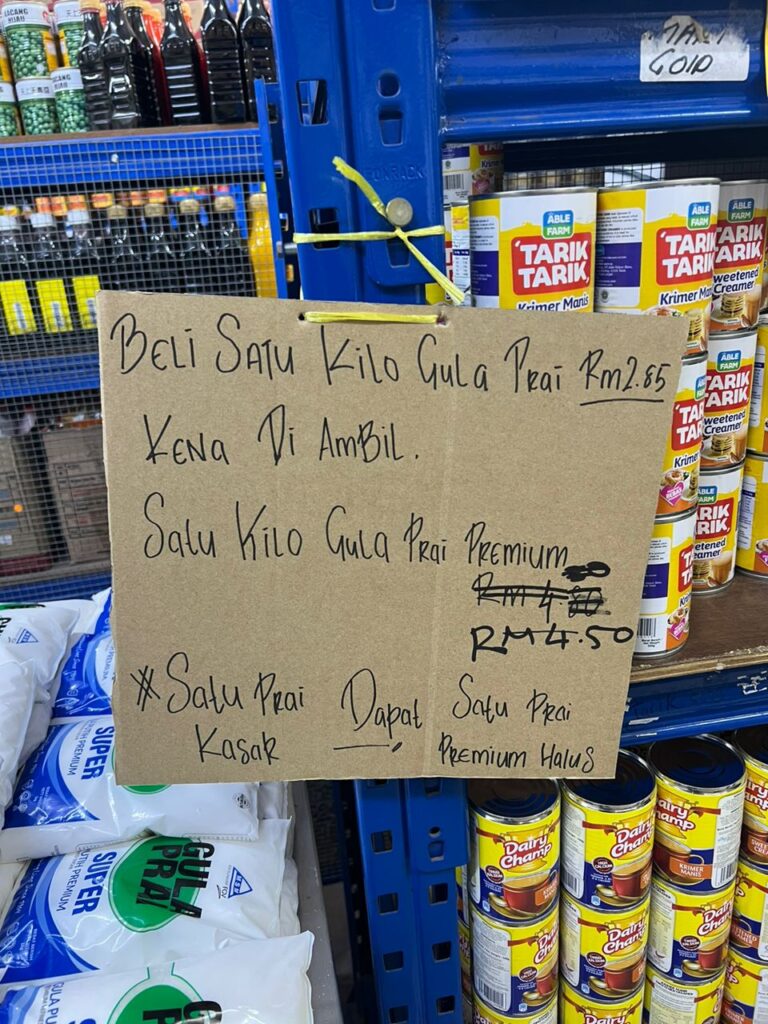 KACANG
HIJAU
MAXI
GOLD
ABLE
FARM
TARIK
TARIK
Krimer Manis
ABLE
FARM
TARIK
TARIK
Krimer Mani
ABLE
FARM
TARIK
TARIK
Sweetened
Creamer
BELI SATU KILO GULA PRAI RM2.85
KENA DI AMBIL.
SATU KILO GULA PRAI PREMIUM
RM 4.80
RM4.50
*SATU PRAI DAPAT SATU PRAI
KASAR PREMIUM HALUS
ABLE
FARM
TARIK
TARIK
Sweetened
Creamer
SUPER
PREMIUM
SUPER
GULA
PRAI
Dairy
Champ
Dairy
Champ
Dairy
Champ
KRIMER
MANIS
Dairy
Champ
Dairy
Champ
Dairy
Champ